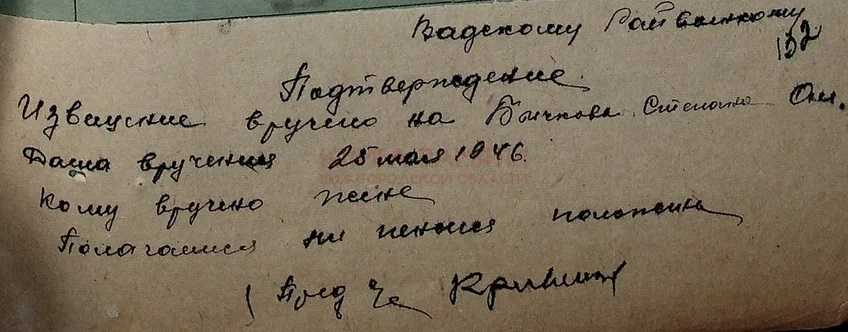 Вадскому Райвоенкому
132
Подтверждение
Извещение вручено на Бычкова Степана Ан.
Дата вручения 25 мая 1946.
Кому вручено жене
Полагаися ли пенсия положена